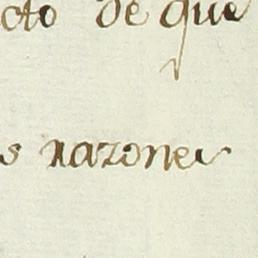 cto de que
s razones